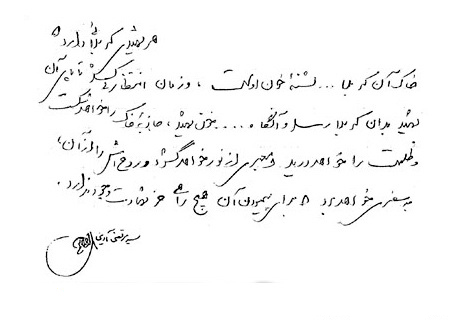 هر شهیدی کربلایی دارد
خاک آن کربلا ... تشنهٔ خون اوست ، و زمان انتظار می‌کشد تا پای آن
شهید بدان کربلا رسد و آنگاه .... خون شهید ، جاذبهٔ خاک را خواهد شکست
و ظلمت را خواهد درید و معبری از نور خواهد گشود و روحش را از آن ،
به سفری خواهد برد که برای پیمودن آن هیچ راهی جز شهادت وجود ندارد .
سید مرتضی آوینی